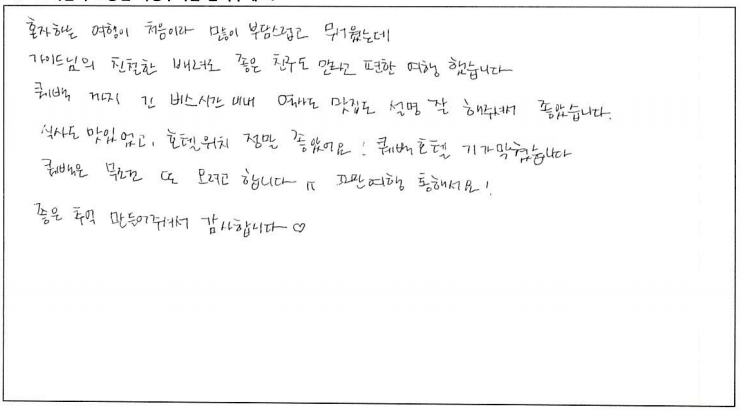 혼자하는 여행이 처음이라 많이 부담스럽고 무서웠는데
가이드님의 친절한 배려로 좋은 친구도 만나고 편한 여행 했습니다
퀘백 까지 긴 버스시간 내내 역사도 맛집도 설명 잘 해주셔서 좋았습니다.
식사도 맛있었고, 호텔위치 정말 좋았어요! 퀘백호텔 기가막혔습니다
퀘백은 무조건 또 오려고 합니다 ㅠ 꼬만여행 통해서요!
좋은 추억 만들어주셔서 감사합니다 ♡